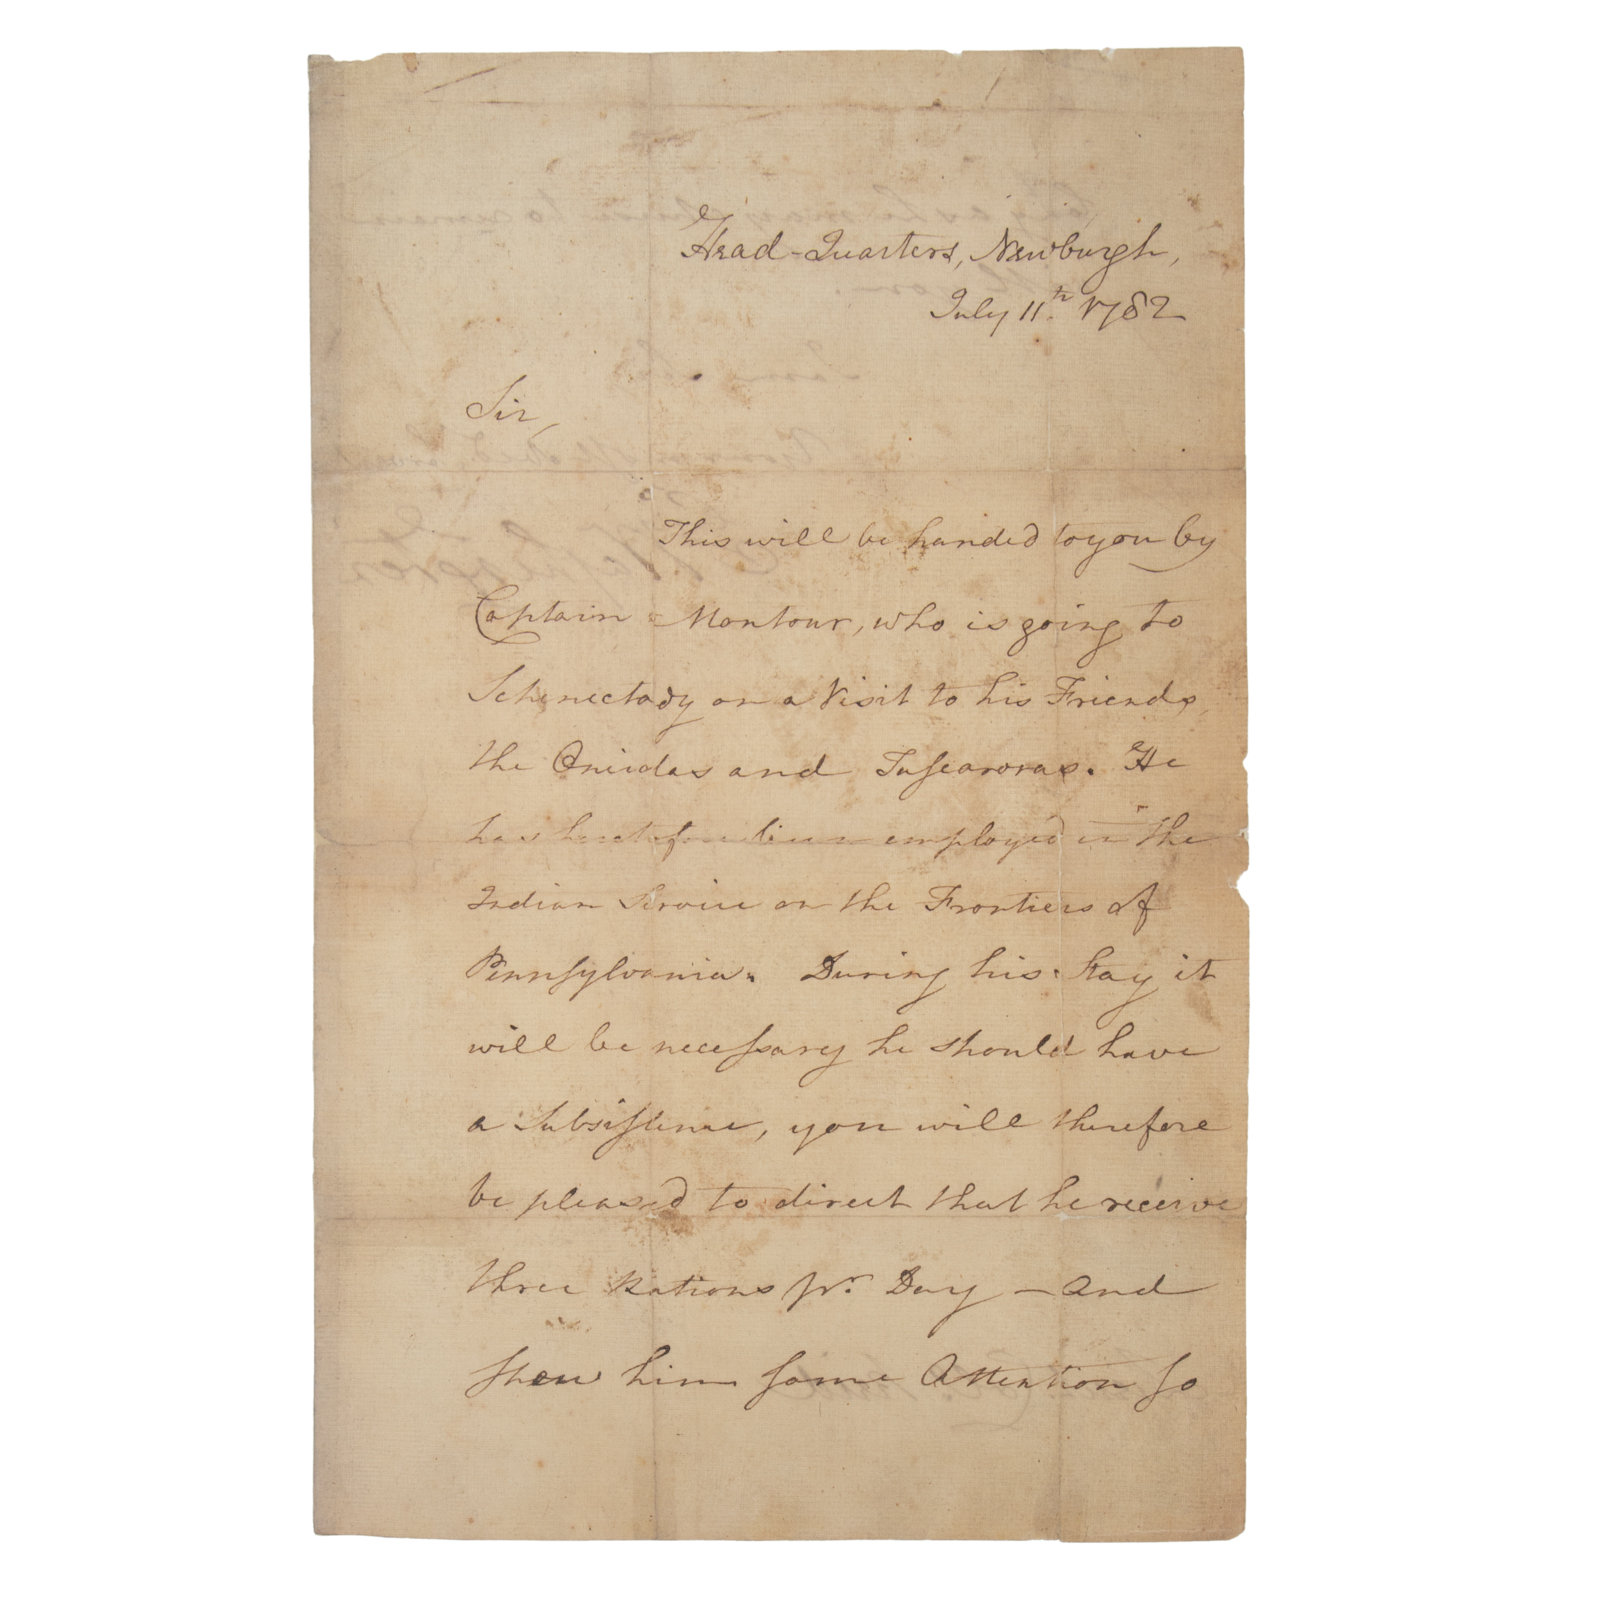 Head-Quarters, Newburgh,
July 11th. 1782
Sir,
This will be handed to you by
Captain Montour, who is going to
Schenectady on a Visit to his Friends,
the Oneidas and Tuscaroras. He
has heretofore been employed in the
Indian Service on the Frontiers of
Pennsylvania. During his Stay it
will be necessary he should have
a Subsistence, you will therefore
be pleased to direct that he receive
three Rations pr. Day — and
shew him some Attention so